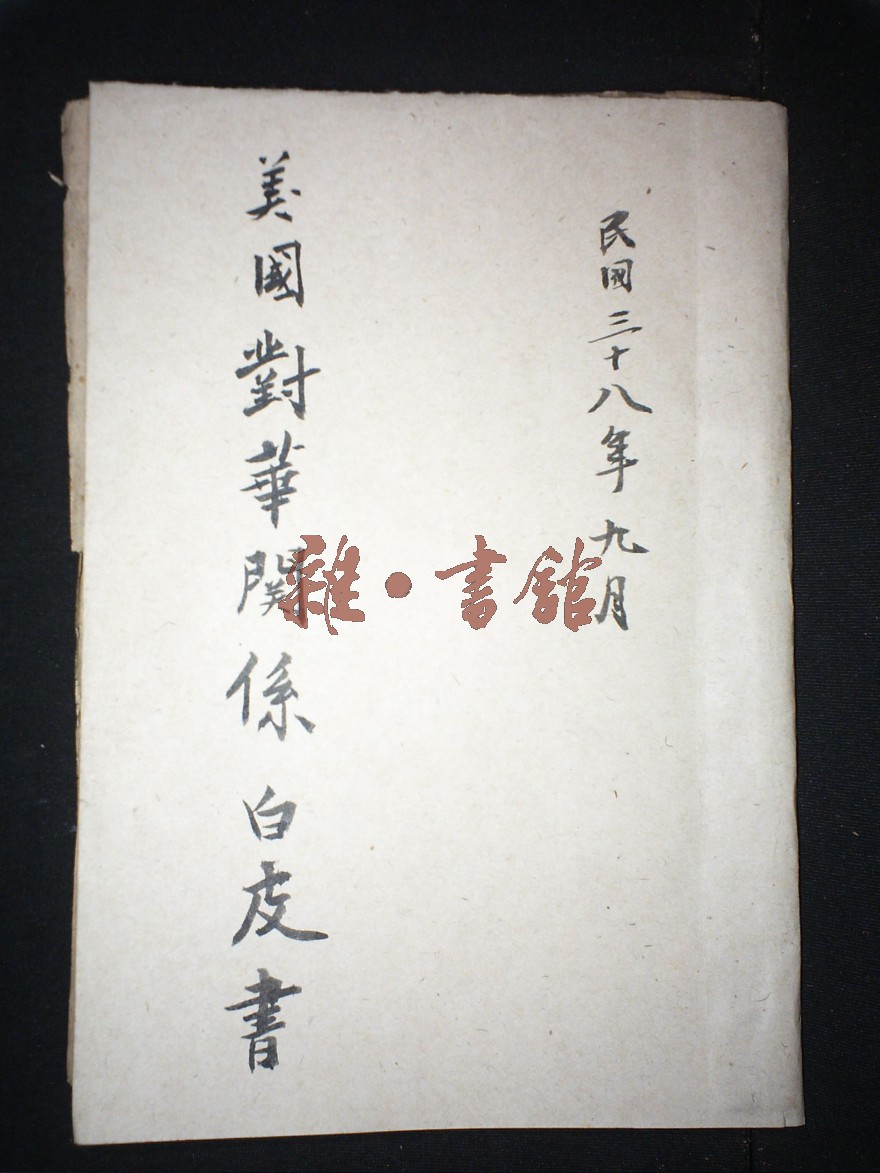 民国三十八年九月
美國對華関係白皮書
雜·書館